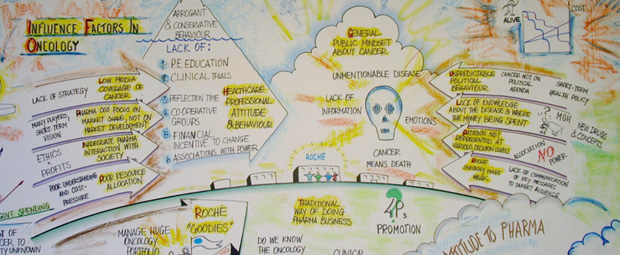 INFLUENCE FACTORS IN
ONCOLOGY
ARROGANT
& CONSERVATIVE
BEHAVIOUR
LACK OF:
1. P.E. EDUCATION
2. CLINICAL TRIALS
3. REFLECTION TIME
CO-OPERATIVE
GROUPS
FINANCIAL
INCENTIVE TO CHANGE
6 ASSOCIATIONS WITH POWER
HEALTHCARE
PROFESSIONAL
ATTITUDE
& BEHAVIOUR
GENERAL
PUBLIC MINDSET
ABOUT CANCER
UNMENTIONABLE DISEASE
LACK OF
INFORMATION
EMOTIONS
CANCER
MEANS DEATH
ROCHE
LACK OF STRATEGY
MANY PLAYERS,
SHORT-TERM
VISION
ETHICS
PROFITS
POOR UNDERSTANDING
AND COST-
PRESSURE
LOW MEDIA
COVERAGE OF
CANCER
PHARMA CO'S FOCUS ON
MARKET SHARE, NOT ON
MARKET DEVELOPMENT
INADEQUATE PHARMA
INTERACTION WITH
SOCIETY
POOR RESOURCE
ALLOCATION
UNPREDICTABLE
POLITICAL
BEHAVIOUR
LACK OF KNOWLEDGE
ABOUT THE DISEASE & WHERE
THE MONEY BEING SPENT
PATIENTS NOT
REPRESENTED AT
VARIOUS DECISION LEVELS
ROCHE
ALIVE
COST
CANCER NOT ON
POLITICAL
AGENDA
SHORT-TERM
HEALTH POLICY
? MOH
NEW DRUGS
& CONCEPTS
ASSOCIATION
NO
POWER
LACK OF COMMUNICATION
OF KEY MESSAGES
TO TARGET AUDIENCE
GOVT. SPENDING
ROCHE
"GOODIES"
TRADITIONAL
WAY OF DOING
PHARMA BUSINESS
4P's
PROMOTION
ATTITUDE TO PHARMA
MANAGE HUGE
ONCOLOGY
PORTFOLIO
DO WE KNOW
THE ONCOLOGY
CLINICAL
UNKNOWN